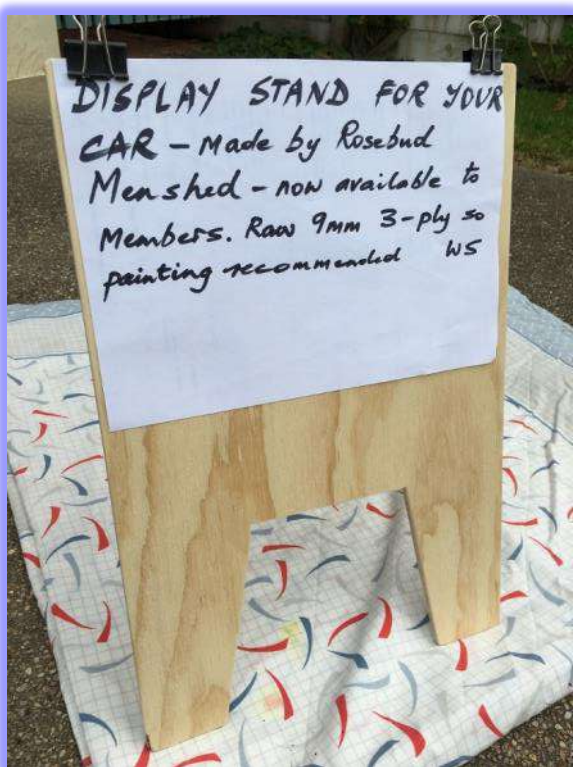 DISPLAY STAND FOR YOUR
CAR - Made by Rosebud
Menshed - now available to
Members. Raw 9mm 3-ply so
painting recommended WS